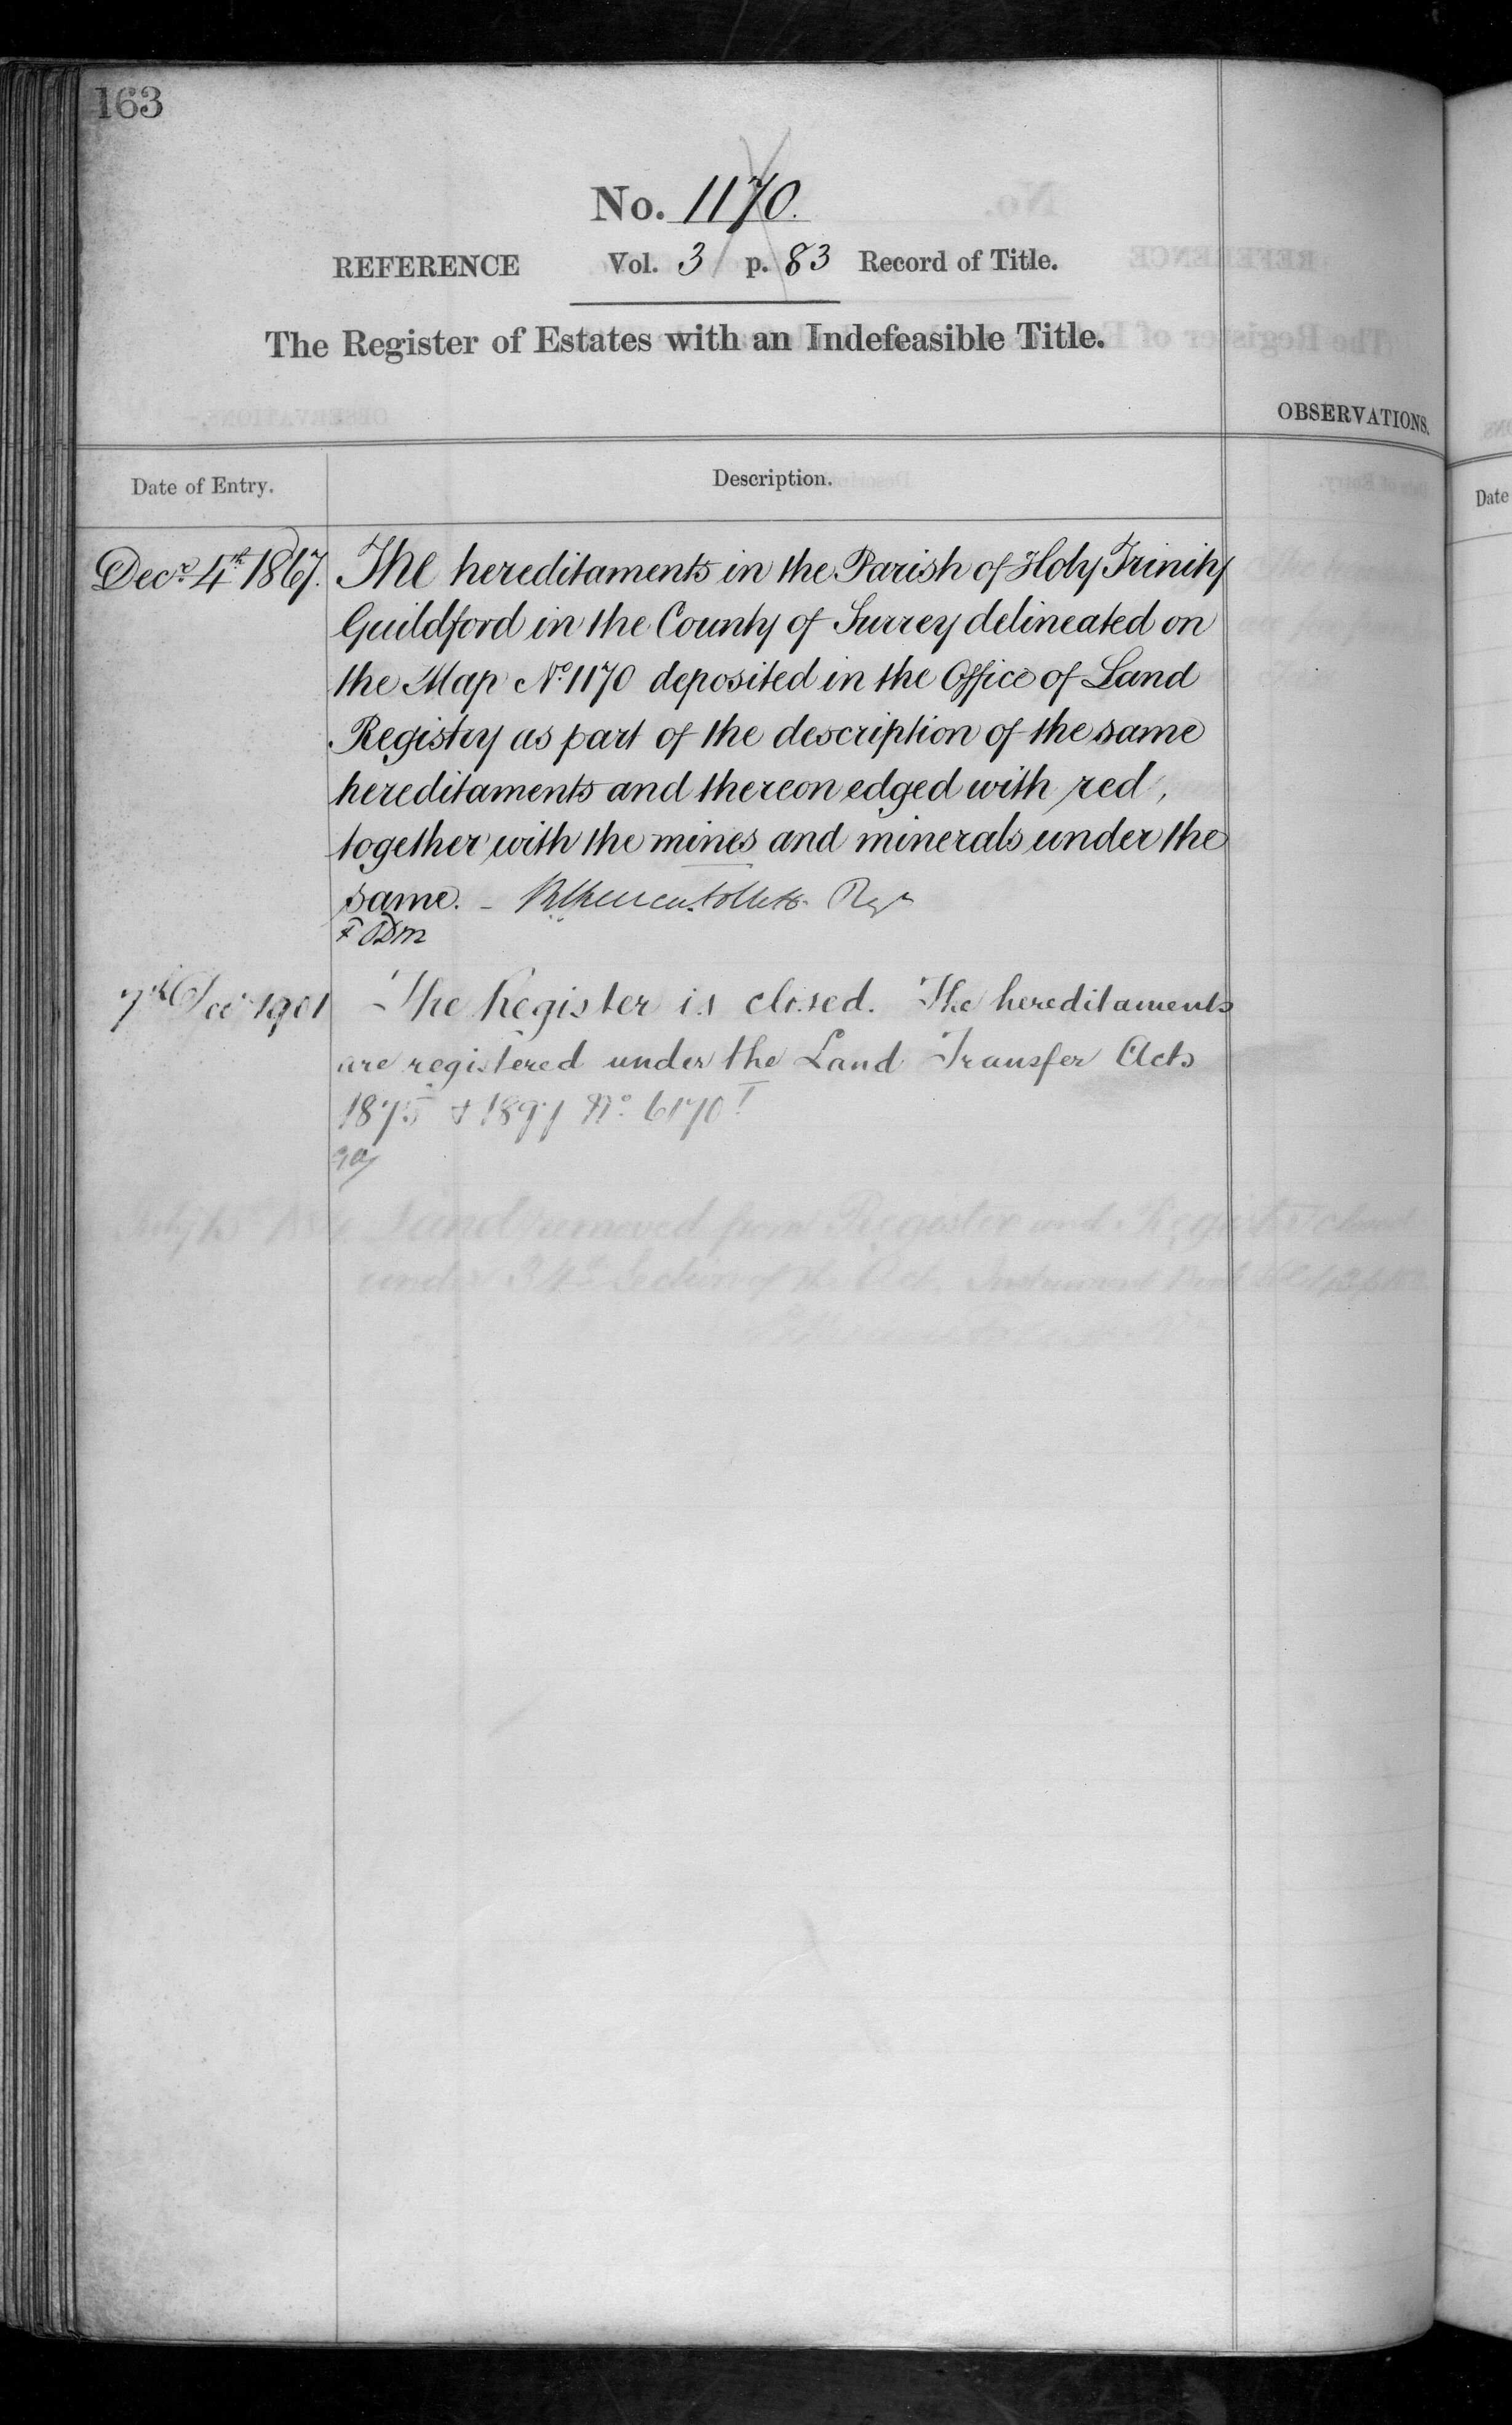 163
No. 1170.
REFERENCE Vol. 3 p. 83 Record of Title.
The Register of Estates with an Indefeasible Title.
OBSERVATIONS.
Date of Entry. Description.
Decr. 4th 1867. The hereditaments in the Parish of Holy Trinity
Guildford in the County of Surrey delineated on
the Map No. 1170 deposited in the Office of Land
Registry as part of the description of the same
hereditaments and thereon edged with red,
together with the mines and minerals under the
same. –
7th 1901 The Register is closed. The hereditaments
are registered under the Land Transfer Acts
1875 & 1897 No. 6170
Land removed from Register and Register closed
under 34th Section of the Act. Instrument
Date